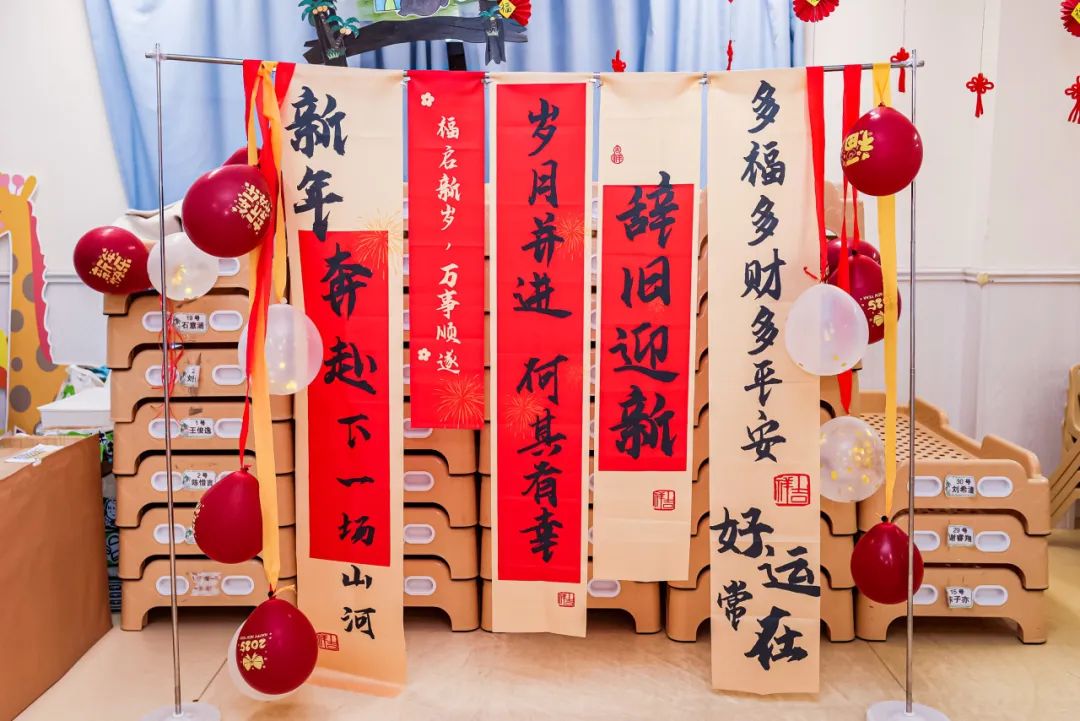 新年
奔赴下一场
山河
福启新岁，万事顺遂
岁月并进 何其有幸
吉祥
辞旧迎新
吉祥
多福多财多平安
吉祥
好运常在
福
2025
2025
19号
石意涵
1号
王俊逸
2号
陈惜言
30号
刘希澈
29号
谢睿翔
15号